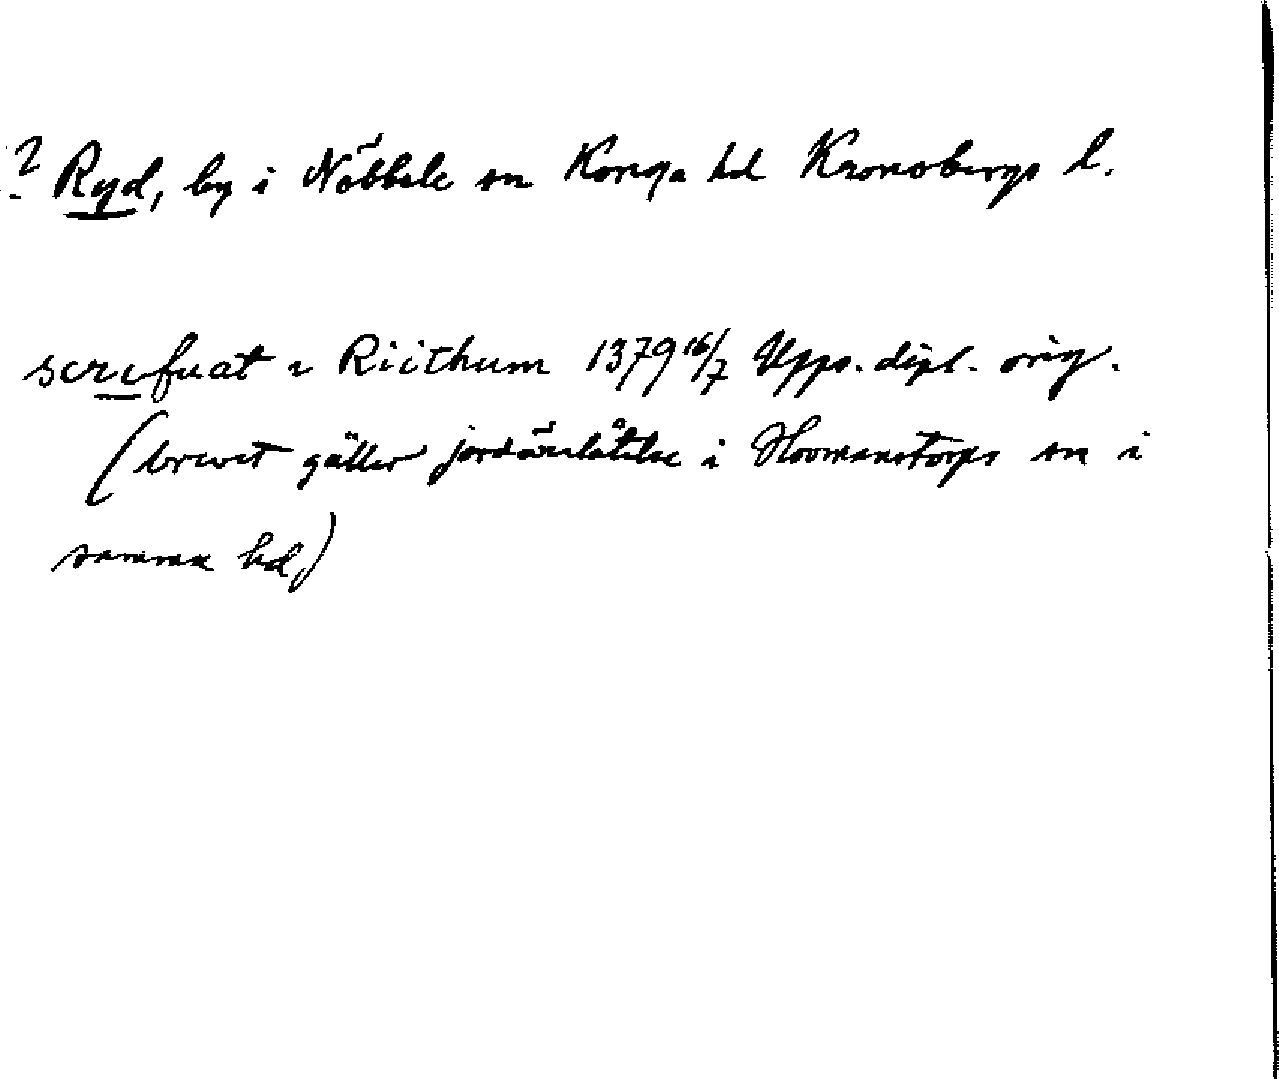 ? Ryd, by i Nöbbele sn Konga hd Kronobergs l.
scrifuat i Riithum 1379 16/7 Upps. dipl. orig.
(brevet gäller jordöverlåtelse i Hovmanstorps sn i
samma hd)